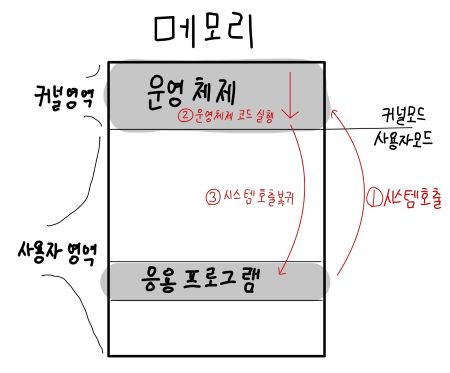 메모리
커널영역
운영 체제
② 운영체제 코드 실행
커널모드
사용자모드
③ 시스템 호출 복귀
① 시스템 호출
사용자 영역
응용 프로그램